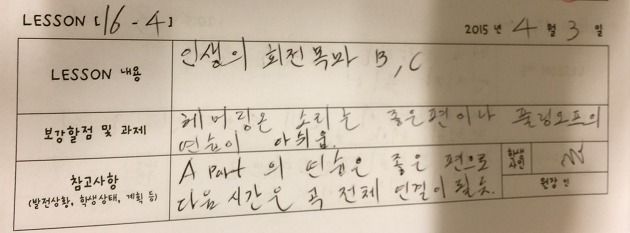 LESSON [16 - 4]
2015 년 4 월 3 일
LESSON 내용
인생의 회전목마 B, C
보강할점 및 과제
헤머링온 소리는 좋은편이나 풀링오프의
연습이 아쉬움.
참고사항
(발전상황, 학생상태, 계획 등)
A part 의 연습은 좋은 편으로
다음시간은 곡 전체 연결이 필요.
학생
사인
원장 인